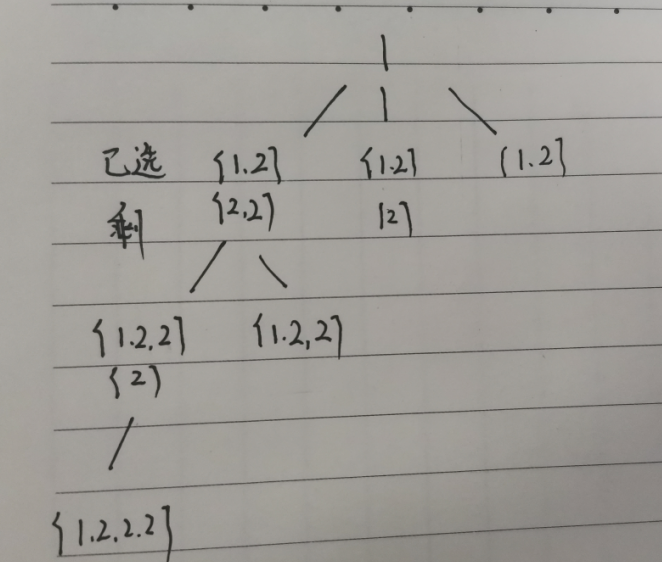 1
已选 {1.2} {1.2} {1.2}
剩 {2,2} {2}
{1.2,2} {1.2,2}
{2}
{1.2.2.2}